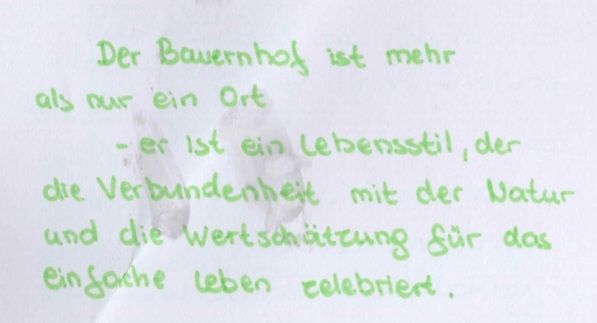 Der Bauernhof ist mehr
als nur ein Ort
- er ist ein Lebensstil, der
die Verbundenheit mit der Natur
und die Wertschätzung für das
einfache Leben zelebriert.